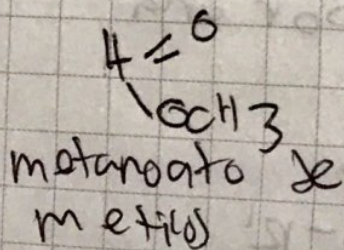 H = O
OCH3
metanoato de
metilo